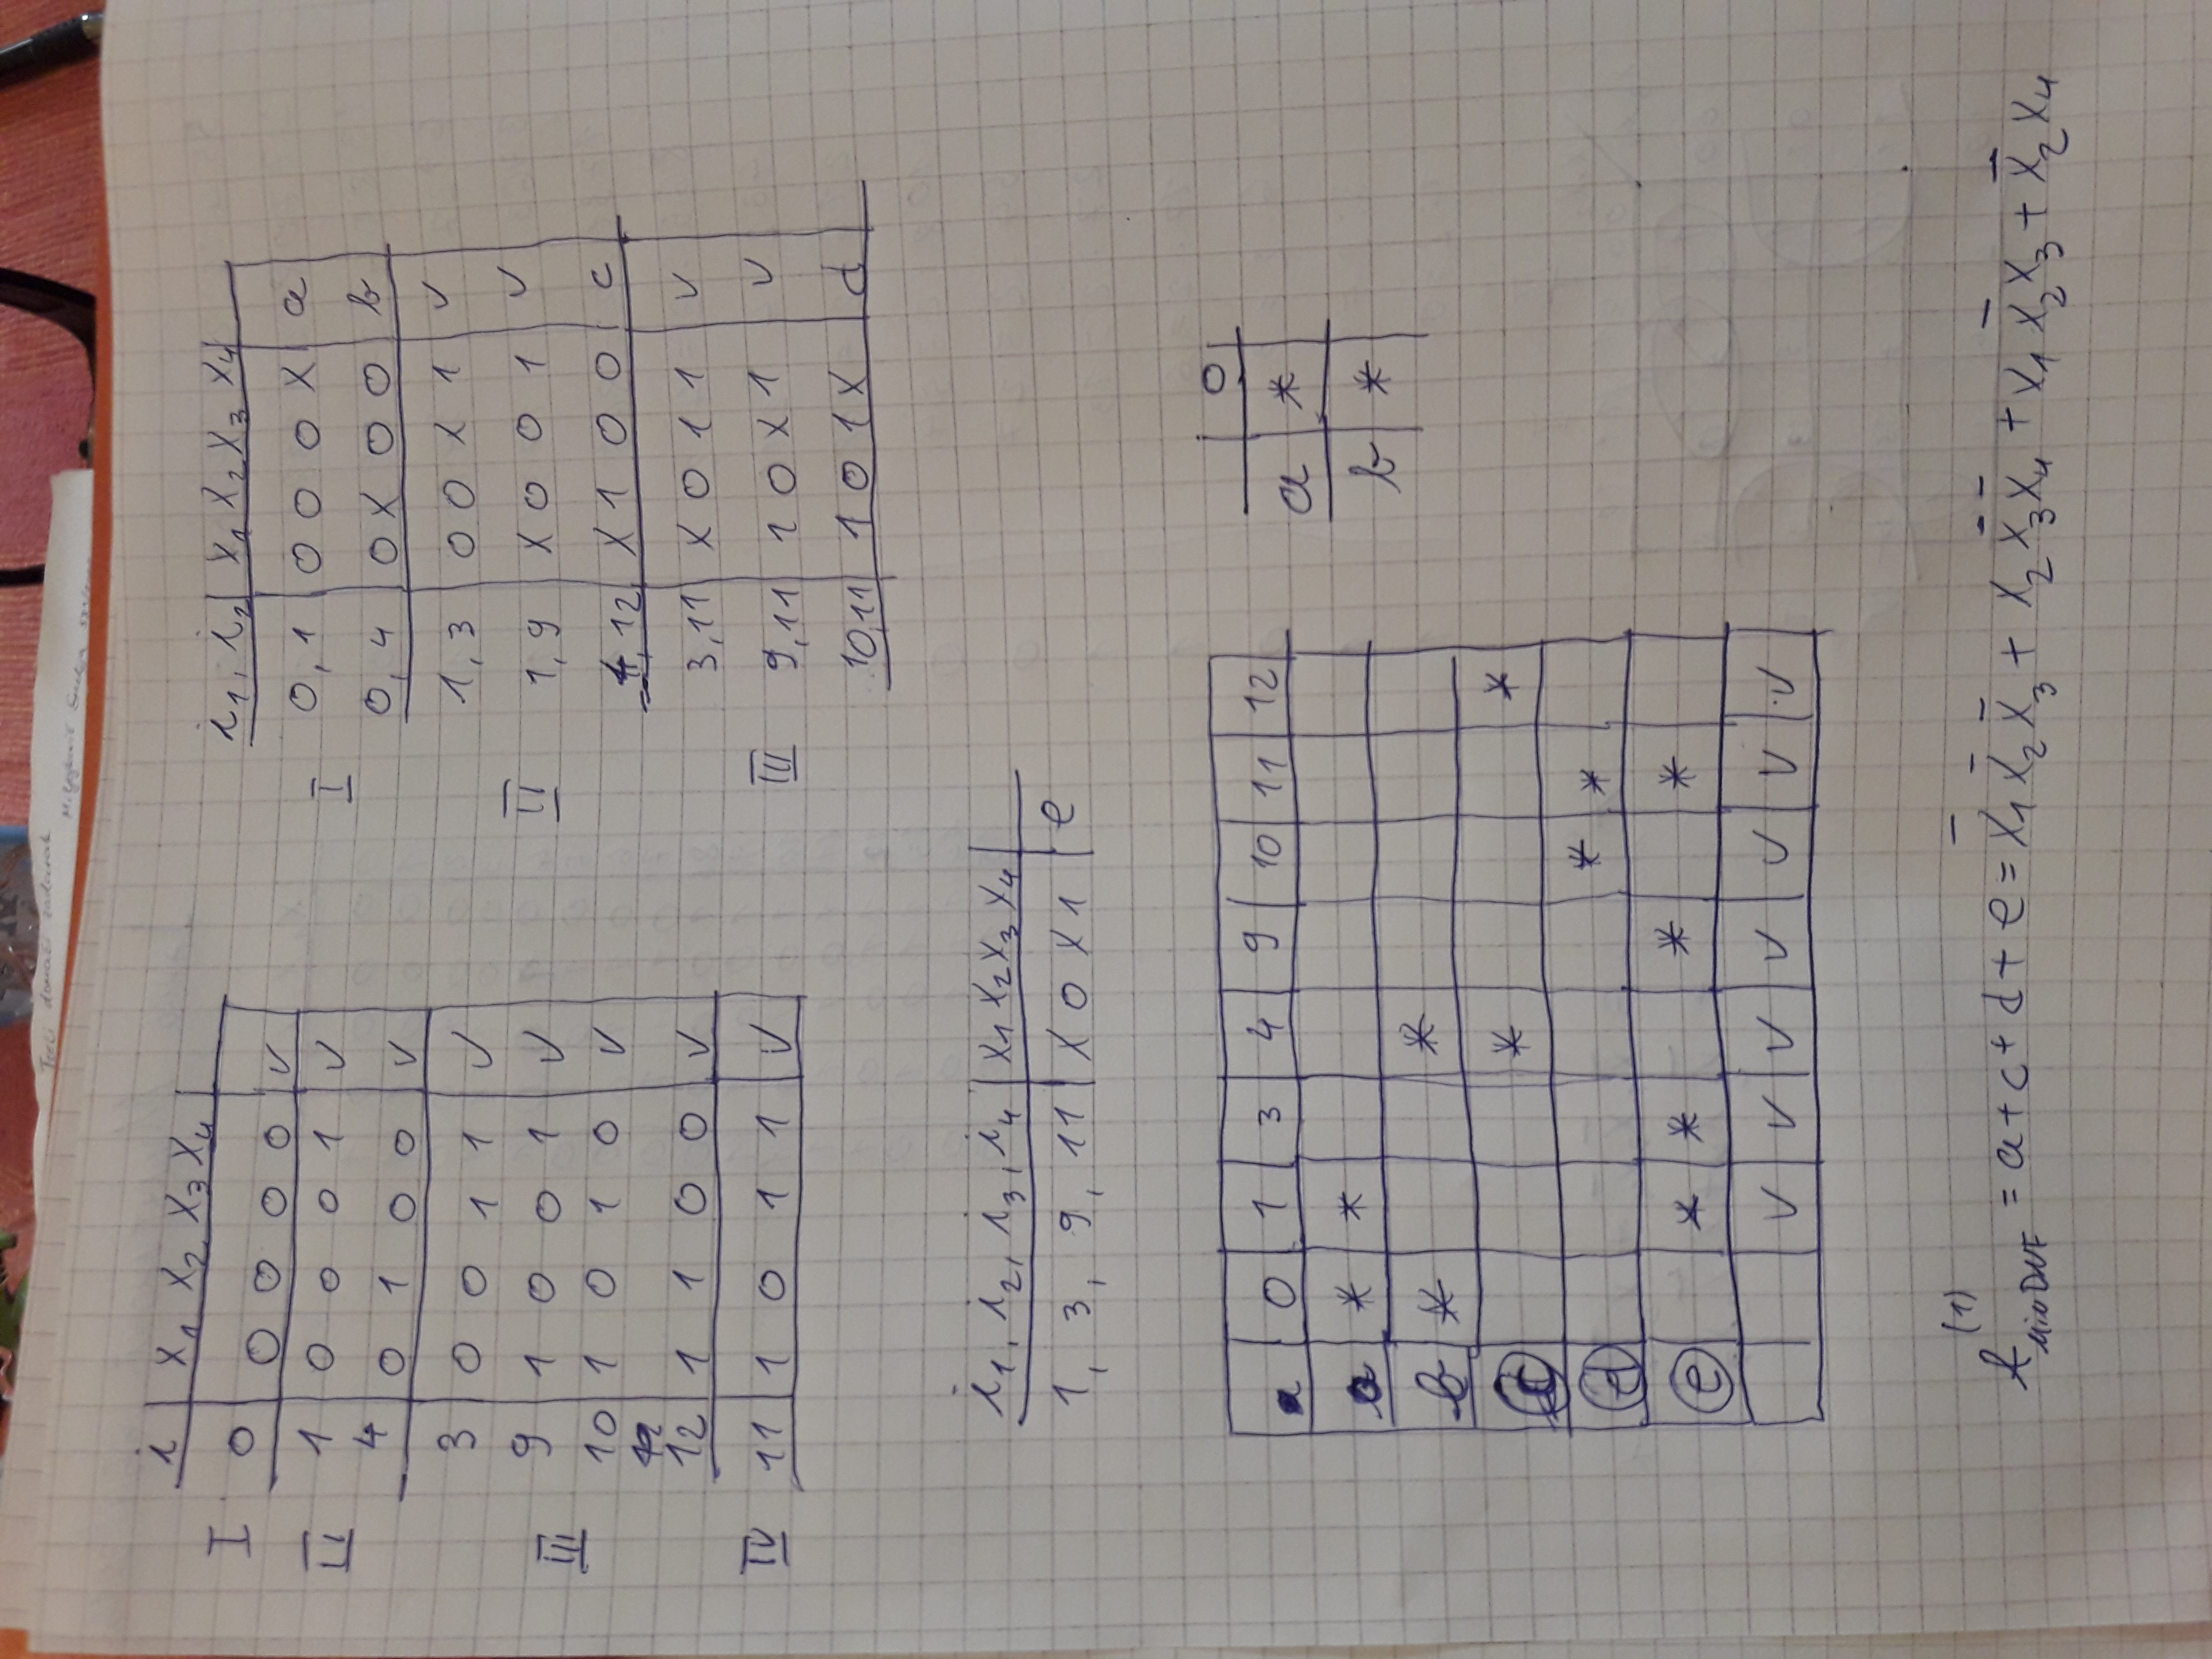 Treći domaći zadatak
i x₁ x₂ x₃ x₄
I 0 0 0 0 0 ✓
II 1 0 0 0 1 ✓
4 0 1 0 0 ✓
3 0 0 1 1 ✓
III 9 1 0 0 1 ✓
10 1 0 1 0 ✓
12 1 1 0 0 ✓
IV 11 1 0 1 1 ✓
i₁, i₂ x₁ x₂ x₃ x₄
I 0,1 0 0 0 X a
0,4 0 X 0 0 b
1,3 0 0 X 1 ✓
II 1,9 X 0 0 1 ✓
4,12 X 1 0 0 c
3,11 X 0 1 1 ✓
III 9,11 1 0 X 1 ✓
10,11 1 0 1 X d
i₁, i₂, i₃, i₄ x₁ x₂ x₃ x₄
1, 3, 9, 11 X 0 X 1 e
0 1 3 4 9 10 11 12
a * *
b * *
c * *
d * *
e * * * *
✓ ✓ ✓ ✓ ✓ ✓ ✓
0
a *
b *
f⁽¹⁾minDNF = a + c + d + e = x̄₁ x̄₂ x̄₃ + x₂ x̄₃ x̄₄ + x₁ x̄₂ x₃ + x̄₂ x₄